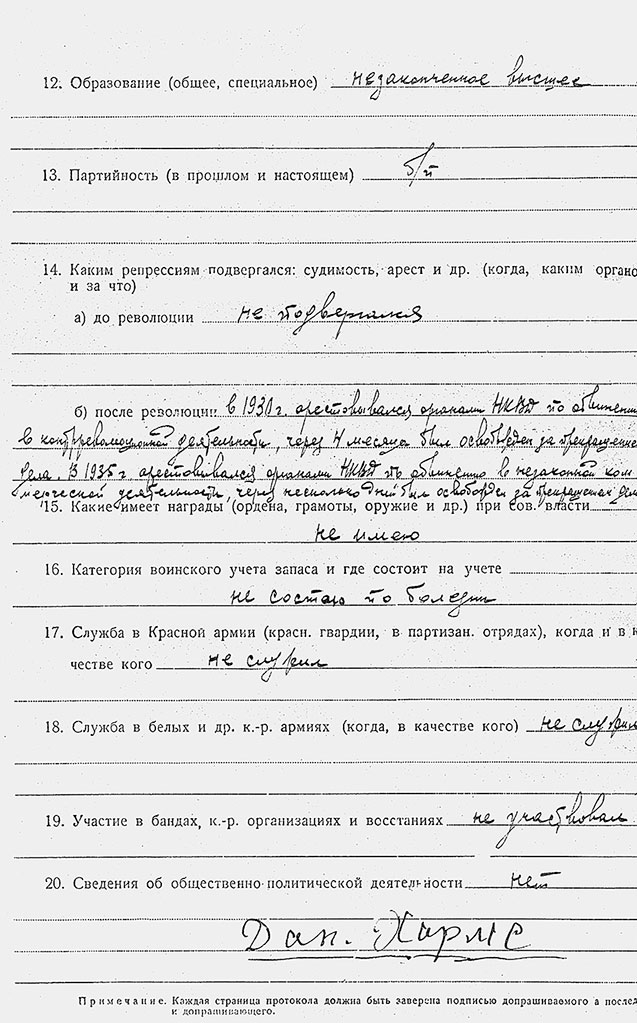 12. Образование (общее, специальное) незаконченное высшее
13. Партийность (в прошлом и настоящем) б/п
14. Каким репрессиям подвергался: судимость, арест и др. (когда, каким органо
и за что)
а) до революции не подвергался
б) после революции в 1930 г. арестовывался органами НКВД по обвинени
в контрреволюционной деятельности, через 4 месяца был освобожден за прекращение
дела. В 1935 г. арестовывался органами НКВД по обвинению в незаконной ком
мерческой деятельности, через несколько дней был освобожден за прекращением дел
15. Какие имеет награды (ордена, грамоты, оружие и др.) при сов. власти
не имею
16. Категория воинского учета запаса и где состоит на учете
не состою по болезни
17. Служба в Красной армии (красн. гвардии, в партизан. отрядах), когда и в к
честве кого не служил
18. Служба в белых и др. к.-р. армиях (когда, в качестве кого) не служил
19. Участие в бандах, к.-р. организациях и восстаниях не участвовал
20. Сведения об общественно-политической деятельности нет
Дан. Хармс
Примечание. Каждая страница протокола должна быть заверена подписью допрашиваемого а послед
и допрашивающего.